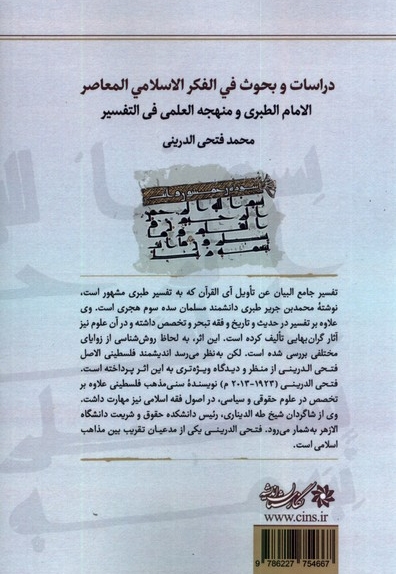 دراسات و بحوث في الفكر الاسلامي المعاصر
الامام الطبری و منهجه العلمی فی التفسیر
محمد فتحی الدرینی
تفسیر جامع البیان عن تأویل آی القرآن که به تفسیر طبری مشهور است،
نوشتهٔ محمدبن جریر طبری دانشمند مسلمان سده سوم هجری است. وی
علاوه بر تفسیر در حدیث و تاریخ و فقه تبحر و تخصص داشته و در آن علوم نیز
آثار گران‌بهایی تألیف کرده است. این اثر، به لحاظ روش‌شناسی از زوایای
مختلفی بررسی شده است. لکن به‌نظر می‌رسد اندیشمند فلسطینی الاصل
فتحی الدرینـی از منظر و دیدگاه ویژه‌تری به این اثر پرداخته است.
فتحی الدرینـی (۱۹۲۳-۲۰۱۳ م) نویسندهٔ سنی‌مذهب فلسطینی علاوه بر
تخصص در علوم حقوقی و سیاسی، در اصول فقه اسلامی نیز مهارت داشت.
وی از شاگردان شیخ طه الدیناری، رئیس دانشکده حقوق و شریعت دانشگاه
الازهر به‌شمار می‌رود. فتحی الدرینـی یکی از مدعیان تقریب بین مذاهب
اسلامی است.
www.cins.ir
9 786227 754667